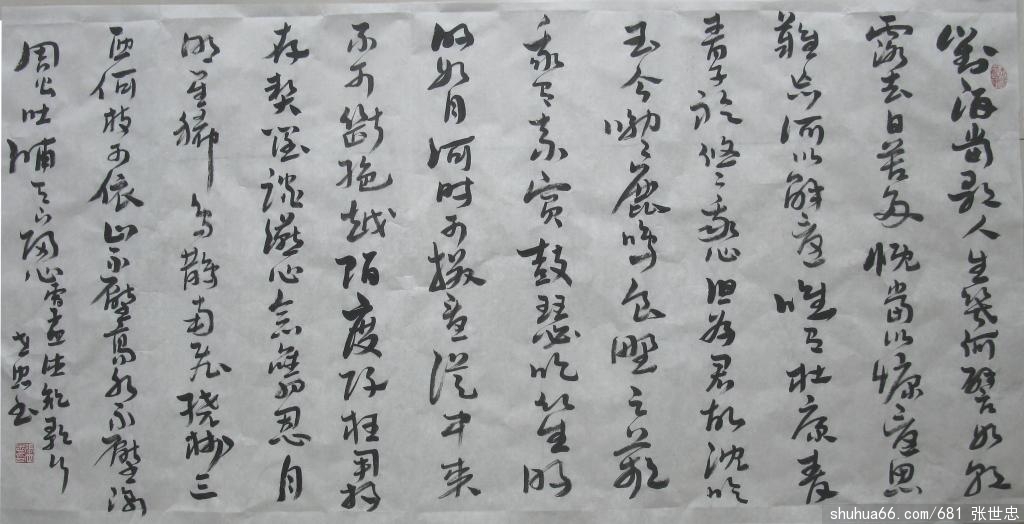 對酒當歌人生幾何譬如朝
露去日苦多慨當以慷憂思
難忘何以解憂唯有杜康青
青子衿悠〻我心但为君故沈吟
至今呦〻鹿鳴食野之蘋
我有嘉賓鼓瑟吹笙明
明如月何時可掇憂從中來
不可斷絶越陌度阡枉用相
存契闊談讌心念舊恩月
明星稀烏鵲南飛繞樹三
匝何枝可依山不厭高水不厭深
周公吐哺天下歸心曹孟德短歌行
世忠書
shuhua66.com/681 张世忠